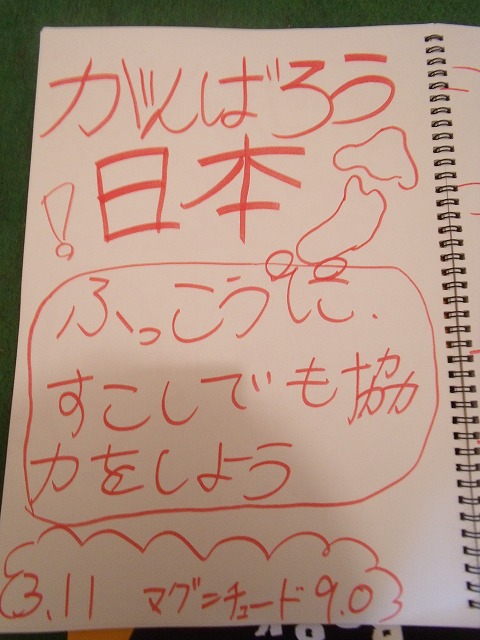 がんばろう
日本!
ふっこうに、
すこしでも協
力をしよう
3.11 マグニチュード9.0